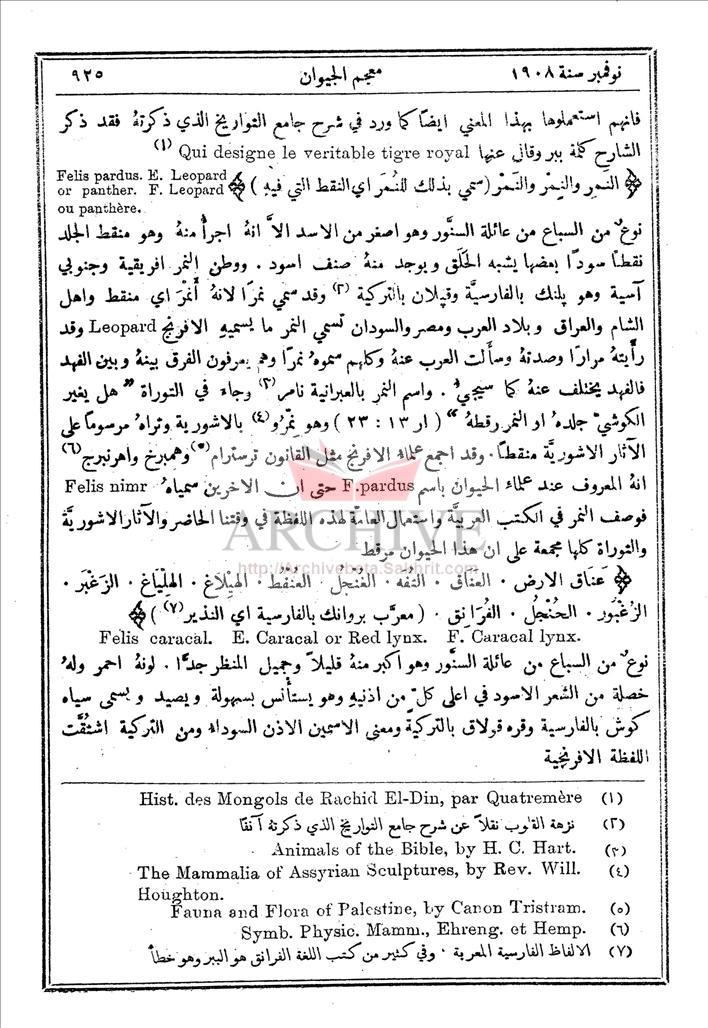 نوفمبر سنة ١٩٠٨ معجم الحيوان ٩٢٥
فانهم استعملوها بهذا المعنى ايضًا كما ورد في شرح جامع التواريخ الذي ذكرتهُ فقد ذكر
الشارح كلمة ببر وقال عنها Qui designe le veritable tigre royal (١)
﴿ النَمِر والنِمْر والنَمْر (سمي بذلك للنُمَر اي النقط التي فيه ) ﴾ Felis pardus. E. Leopard
or panther. F. Leopard
ou panthère.
نوعٌ من السباع من عائلة السنَّور وهو اصغر من الاسد الاَّ انهُ اجرأُ منهُ وهو منقط الجلد
نقطًا سودًا بعضها يشبه الحَلَق ويوجد منهُ صنف اسود . ووطن النمر افريقية وجنوبي
آسية وهو پلنك بالفارسية وقپلان بالتركية (٢) وقد سمي نمرًا لانهُ أَنمَرُ اي منقط واهل
الشام والعراق وبلاد العرب ومصر والسودان تسمي النمر ما يسميهِ الافرنج Leopard وقد
رأَيتهُ مرارًا وصدتهُ وسأَلت العرب عنهُ وكلهم سموهُ نمرًا وهم يعرفون الفرق بينهُ وبين الفهد
فالفهد يختلف عنهُ كما سيجيءُ . واسم النمر بالعبرانية نامر (٣) وجاء في التوراة " هل يغير
الكوشيّ جلدهُ او النمر رقطهُ " ( ار ١٣ : ٢٣ ) وهو نِمْرُو (٤) بالاشورية وتراهُ مرسومًا على
الآثار الاشوريَّة منقطًا . وقد اجمع علماء الافرنج مثل القانون ترسترام (٥) وهمبرخ واهرنبرج (٦)
انهُ المعروف عند علماء الحيوان باسم F.pardus حتى ان الاخرين سمياهُ Felis nimr
فوصف النمر في الكتب العربيَّة واستعمال العامَّة لهذه اللفظة في وقتنا الحاضر والآثار الاشوريَّة
والتوراة كلها مجمعة على ان هذا الحيوان مرقط
ARCHIVE
http://Archivebeta.Sakhrit.com
﴿ عَنَاق الارض . العَنَاق . التفَه . الغُنْجل . العنْفَط . الهِيْلاَغ . الهِلْيَاغ . الزَغْبَر .
الزُغْبُور . الحُنْجُل . الفُرَانق . ( معرَّب بروانك بالفارسية اي النذير (٧) ) ﴾
Felis caracal. E. Caracal or Red lynx. F. Caracal lynx.
نوعٌ من السباع من عائلة السنَّور وهو اكبر منهُ قليلاً وجميل المنظر جدًّا . لونهُ احمر ولهُ
خصلة من الشعر الاسود في اعلى كلّ من اذنيهِ وهو يستأنس بسهولة ويصيد ويسمى سياه
كوش بالفارسية وقره قولاق بالتركية ومعنى الاسمين الاذن السوداء ومن التركية اشتُقَّت
اللفظة الافرنجية
(١) Hist. des Mongols de Rachid El-Din, par Quatremère
(٢) نزهة القلوب نقلاً عن شرح جامع التواريخ الذي ذكرتهُ آنفًا
(٣) Animals of the Bible, by H. C. Hart.
(٤) The Mammalia of Assyrian Sculptures, by Rev. Will.
Houghton.
(٥) Fauna and Flora of Palestine, by Canon Tristram.
(٦) Symb. Physic. Mamm., Ehreng. et Hemp.
(٧) الالفاظ الفارسية المعربة . وفي كثير من كتب اللغة الفرانق هو الببر وهو خطأ